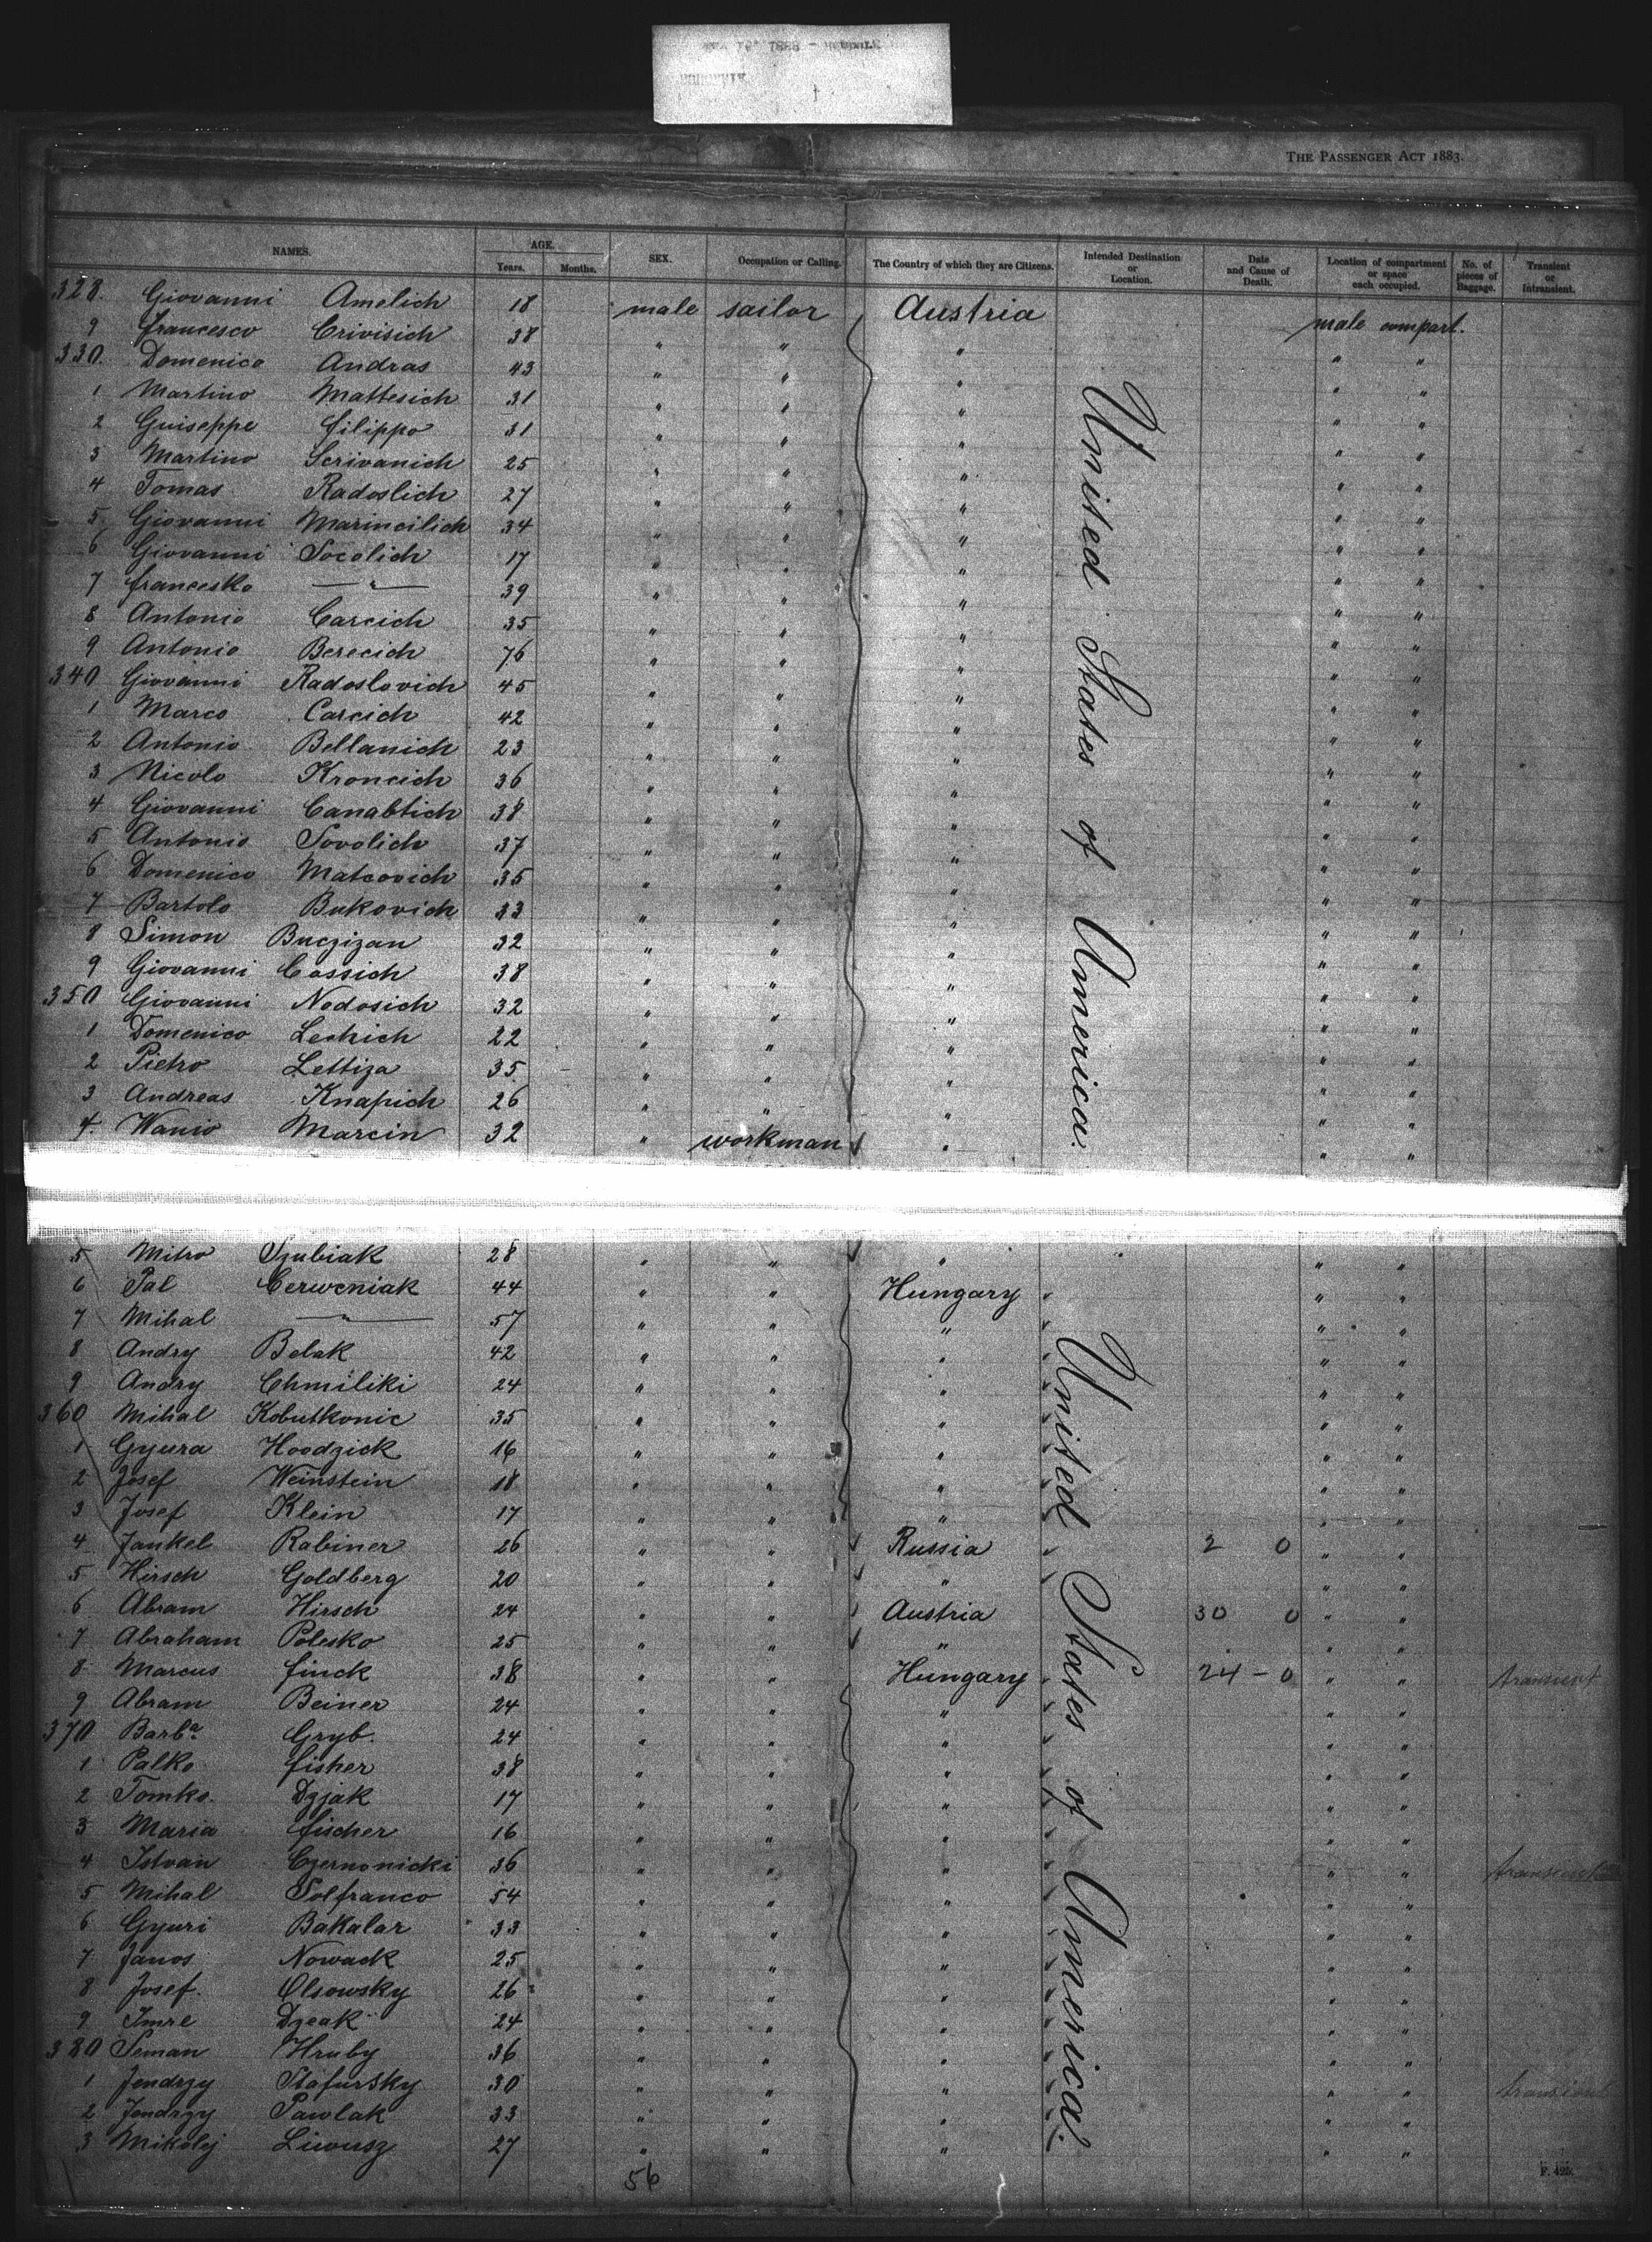 THE PASSENGER ACT 1883.
NAMES. AGE. SEX. Occupation or Calling. The Country of which they are Citizens. Intended Destination or Location. Date and Cause of Death. Location of compartment or space each occupied. No. of pieces of Baggage. Transient or Intransient.
Years. Months.
328. Giovanni Amelich 18 male sailor Austria male compart.
9 Francesco Crivisich 38 " " " " "
330. Domenico Andras 43 " " " " "
1 Martino Mattesich 31 " " " " "
2 Guiseppe Filippo 31 " " " " "
3 Martino Scrivanich 25 " " " " "
4 Tomas Radoslich 27 " " " " "
5 Giovanni Marincilich 34 " " " " "
6 Giovanni Socolich 17 " " " " "
7 Francesko —"— 39 " " " " "
8 Antonio Carcich 35 " " " " "
9 Antonio Berecich 76 " " " " "
340 Giovanni Radoslovich 45 " " " " "
1 Marco Carcich 42 " " " " "
2 Antonio Bellanich 23 " " " " "
3 Nicolo Kroncich 36 " " " " "
4 Giovanni Canabtich 38 " " " " "
5 Antonio Sovolich 37 " " " " "
6 Domenico Matcovich 35 " " " " "
7 Bartolo Bukovich 33 " " " " "
8 Simon Buczizan 32 " " " " "
9 Giovanni Cossich 38 " " " " "
350 Giovanni Nodosich 32 " " " " "
1 Domenico Leshich 22 " " " " "
2 Pietro Lettiza 35 " " " " "
3 Andreas Knapich 26 " " " " "
4. Wanio Marcin 32 " workman " " "
United States of America.
5 Mitro Szubiak 28 " " " " "
6 Pal Cerweniak 44 " " Hungary " "
7 Mihal —"— 57 " " " " "
8 Andry Belak 42 " " " " "
9 Andry Chmiliki 24 " " " " "
360 Mihal Kobutkonic 35 " " " " "
1 Gyura Hoodzick 16 " " " " "
2 Josef Weinstein 18 " " " " "
3 Josef Klein 17 " " " " "
4 Jankel Rabiner 26 " " Russia 2 0 " "
5 Hirsch Goldberg 20 " " " " "
6 Abram Hirsch 24 " " Austria 30 0 " "
7 Abraham Polesko 25 " " " " "
8 Marcus Finck 38 " " Hungary 24 - 0 " " transient
9 Abram Beiner 24 " " " " "
370 Barbª Gryb. 24 " " " " "
1 Palko Fisher 38 " " " " "
2 Tomko. Dzjak 17 " " " " "
3 Maria Fischer 16 " " " " "
4 Istvan Czernonicki 36 " " " " " transient
5 Mihal Solfranco 54 " " " " "
6 Gyuri Bakalar 33 " " " " "
7 Janos Nowack 25 " " " " "
8 Josef. Olsowsky 26 " " " " "
9 Imre Dzeak 24 " " " " "
380 Seman Hruby 36 " " " " "
1 Jendrzy Stafursky 30 " " " " " transient
2 Jendrzy Pawlak 33 " " " " "
3 Mikolej Liwusz 27 " " " " "
United States of America.
56
F. 425.